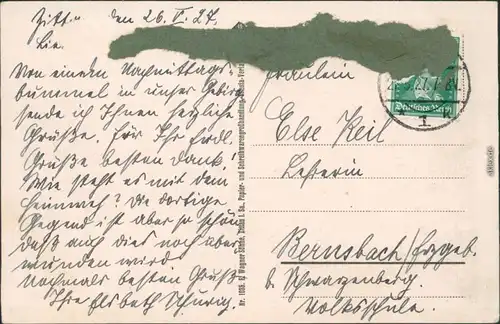 Zittau den 26. V. 27.
Von einem Nachmittags-
bummel in unser Gebirge
sende ich Ihnen herzliche
Grüße. Für Ihr frdl.
Grüße besten Dank!
Wie steht es mit dem
Heimweh? Die dortige
Gegend ist aber so schön
daß auch dies noch über
wunden wird
Nochmals besten Gruß
Ihre Elsbeth
Wagner Söhne, Zittau i. Sa., Papier- und Schreibwarengroßhandlung
Fräulein
Else Keil
Lehrerin
Bernsbach/Erzgeb.
b. Schwarzenberg.
Volksschule.
Deutsches Reich